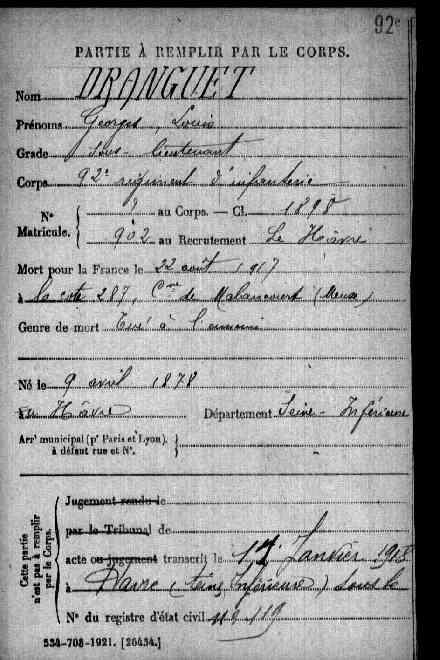 92e
PARTIE À REMPLIR PAR LE CORPS.
Nom DRANGUET
Prénoms Georges, Louis
Grade sous-lieutenant
Corps 92e régiment d'infanterie
Nos Matricule. { au Corps. — Cl. 1898
902 au Recrutement Le Havre
Mort pour la France le 22 août 1917
à la cote 287, Cne de Malancourt (Meuse)
Genre de mort Tué à l'ennemi
Né le 9 avril 1878
au Hâvre Département Seine-Inférieure
Arrt municipal (pr Paris et Lyon), }
à défaut rue et No.
Cette partie n'est pas à remplir par le Corps.
Jugement rendu le
par le Tribunal de
acte ou jugement transcrit le 17 Janvier 1918
à Havre (Seine Inférieure) sous le
No du registre d'état civil no 119
534-708-1921. [26434.]